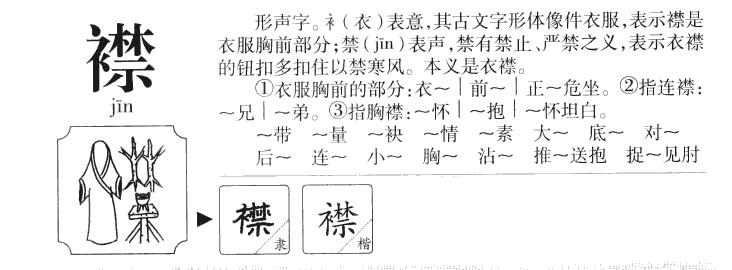 襟
jīn
形声字。衤（衣）表意，其古文字形体像件衣服，表示襟是
衣服胸前部分；禁（jīn）表声，禁有禁止、严禁之义，表示衣襟
的钮扣多扣住以禁寒风。本义是衣襟。
①衣服胸前的部分：衣～｜前～｜正～危坐。②指连襟：
～兄｜～弟。③指胸襟：～怀｜～抱｜～怀坦白。
～带 ～量 ～袂 ～情 ～素 大～ 底～ 对～
后～ 连～ 小～ 胸～ 沾～ 推～送抱 捉～见肘
襟 隶
襟 楷